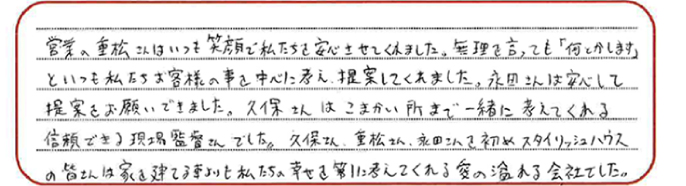 営業の重松さんはいつも笑顔で私たちを安心させてくれました。無理を言っても「何とかします」
といつも私たちお客様の事を中心に考え、提案してくれました。永田さんは安心して
提案をお願いできました。久保さんはこまかい所まで一緒に考えてくれる
信頼できる現場監督さんでした。久保さん、重松さん、永田さんを初めスタイリッシュハウス
の皆さんは家を建てる事よりも私たちの幸せを第1に考えてくれる愛の溢れる会社でした。